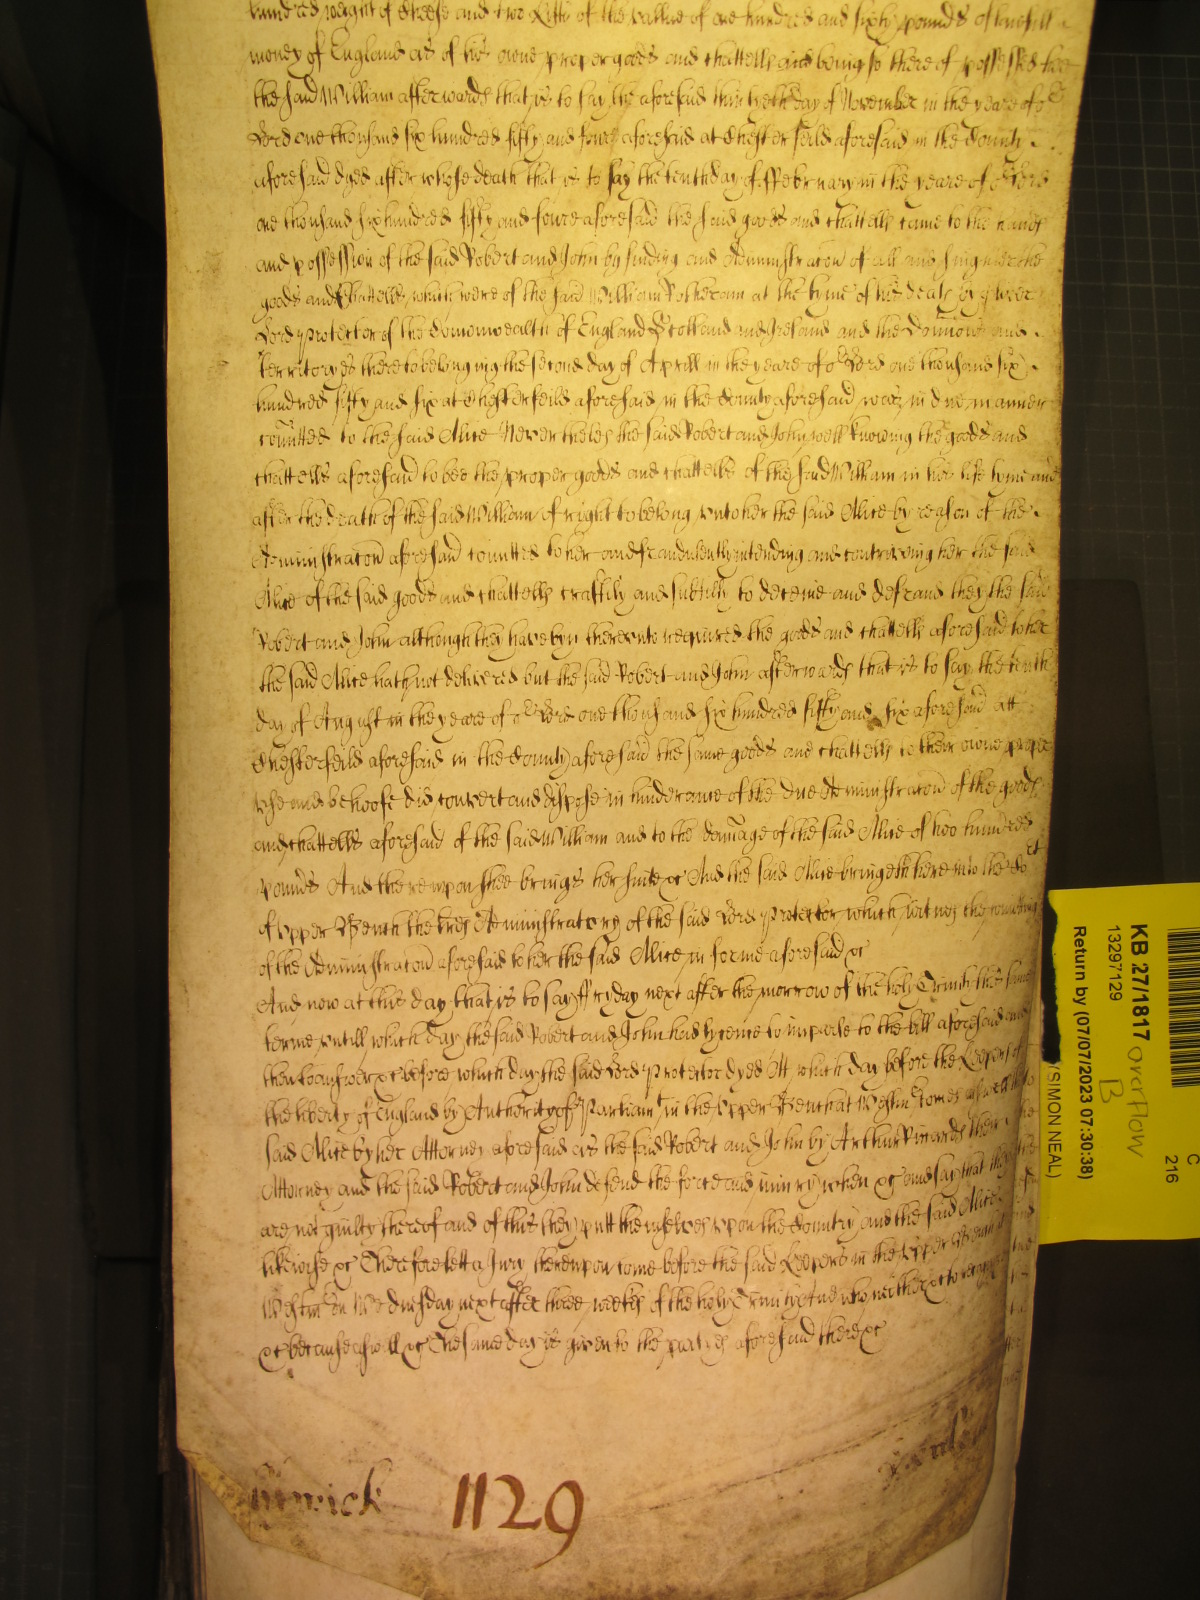 hundred weight of Cheese and two of the vallue of one hundred and sixty pounds of lawfull
money of England as of his owne proper goods and chattells and being so thereof possessed hee
the said William afterwards that is to say the aforesaid day of November in the yeare of or
Lord one thousand six hundred fifty and foure aforesaid at Chesterfeild aforesaid in the County
aforesaid dyed after whose death that is to say the tenth day of ffebruary in the yeare of or Lord
one thousand six hundred fifty and foure aforesaid the said goods and chattells came to the hands
and possession of the said Robert and John by finding and Administracon of all and singuler the
goods and Chattells which were of the said William Rotheram at the tyme of his death by
Lord protector of the Comonwealth of England Scotland and Ireland and the Dominions and
territoryes thereto belonging the second day of Aprill in the yeare of or Lord one thousand six
hundred fifty and six at Chesterfeild aforesaid in the County aforesaid was in due manner
comitted to the said Alice Neverthelesse the said Robert and John well knowing the goods and
chattells aforesaid to bee the proper goods and chattells of the said William in his life tyme and
after the death of the said William of right to belong unto her the said Alice by reason of the
Administracon aforesaid comitted to her and fraudulently intending and contriving her the said
Alice of the said goods and chattells craftily and subtilly to deceive and defraud they the said
Robert and John although they have byn thereunto required the goods and chattells aforesaid to her
the said Alice hath not delivered but the said Robert and John afterwards that is to say the tenth
day of August in the yeare of or Lord one thousand six hundred fifty and six aforesaid att
Chesterfeild aforesaid in the County aforesaid the same goods and chattells to their owne proper
use and behoofe did convert and dispose in hinderance of the due Administracon of the goods
and chattells aforesaid of the said William and to the damage of the said Alice of two hundred
pounds And thereupon shee brings her suite &c And the said Alice bringeth here into the Cort
of upper Bench the lres Administratory of the said Lord Protector which witnes the comitting
of the Administracon aforesaid to her the said Alice in forme aforesaid &c
And now at this day that is to say ffryday next after the morrow of the holy Trinity this same
terme untill which day the said Robert and John had lycence to imparle to the bill aforesaid and
then to answer &c before which day the said Lord Protector dyed Att which day before the Keepers of
the liberty of England by Authority of Parliamt in the upper Bench at Westmr comes aswell the
said Alice by her Attorney aforesaid as the said Robert and John by Arthur Ricards their
Attorney and the said Robert and John defend the force and iniury when &c and say that they
are not guilty thereof and of this they putt themselves upon the Country and the said Alice
likewise &c Therefore lett a Jury thereupon come before the said Keepers in the upper Bench at
Westmr on Wednesday next after three weekes of the holy Trinity And who neither &c to recognize
&c because aswell &c The same day is given to the partyes aforesaid there &c
1129
KB 27/1817 overflow
B
13297129
Return by (07/07/2023 07:30:38)
(SIMON NEAL)
C
216